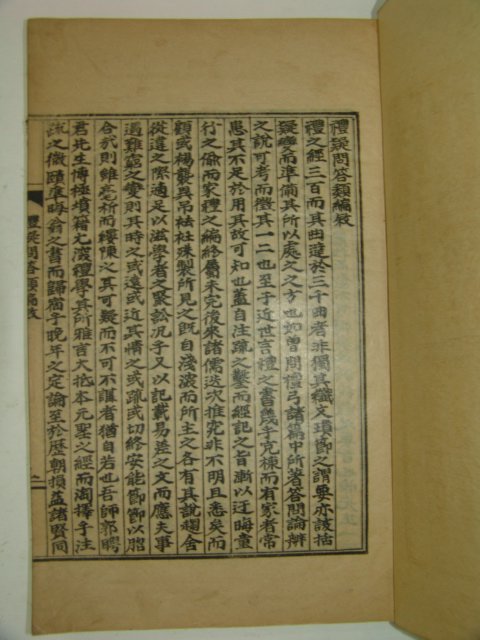 禮疑問答類編敘
禮之經三百而其曲遵於三千曲者非獨其織文瑣節之謂要亦該括
疑變而準備其所以處之之方也如曾問檀弓諸篇中所著答問論辨
之說可考而徵其一二也至于近世言禮之書幾乎克棟而有家者常
患其不足於用其故可知也蓋自注疏之鑿而經記之旨漸以迂晦童
行之偷而家禮之編終屬未完後來諸儒迭次推究非不明且悉矣而
顧或楊襲異吊袪社殊製所見之旣自淺深而所主之各有其說趨舍
從違之際適足以滋學者之聚訟况乎又以記載易差之文而應夫事
遇難窮之變則其時之或遠或近其情之或疏或切終安能節節以脗
合哉則雖毫析而縷陳之其可疑而不可不講者猶自若也吾師郭聘
君先生博極墳籍尤邃禮學其所雅言大抵本元聖之經而淘擇乎注
疏之微頤準晦翁之書而歸宿乎晚年之定論至於歷朝損益諸賢同
禮疑問答類編敘
一